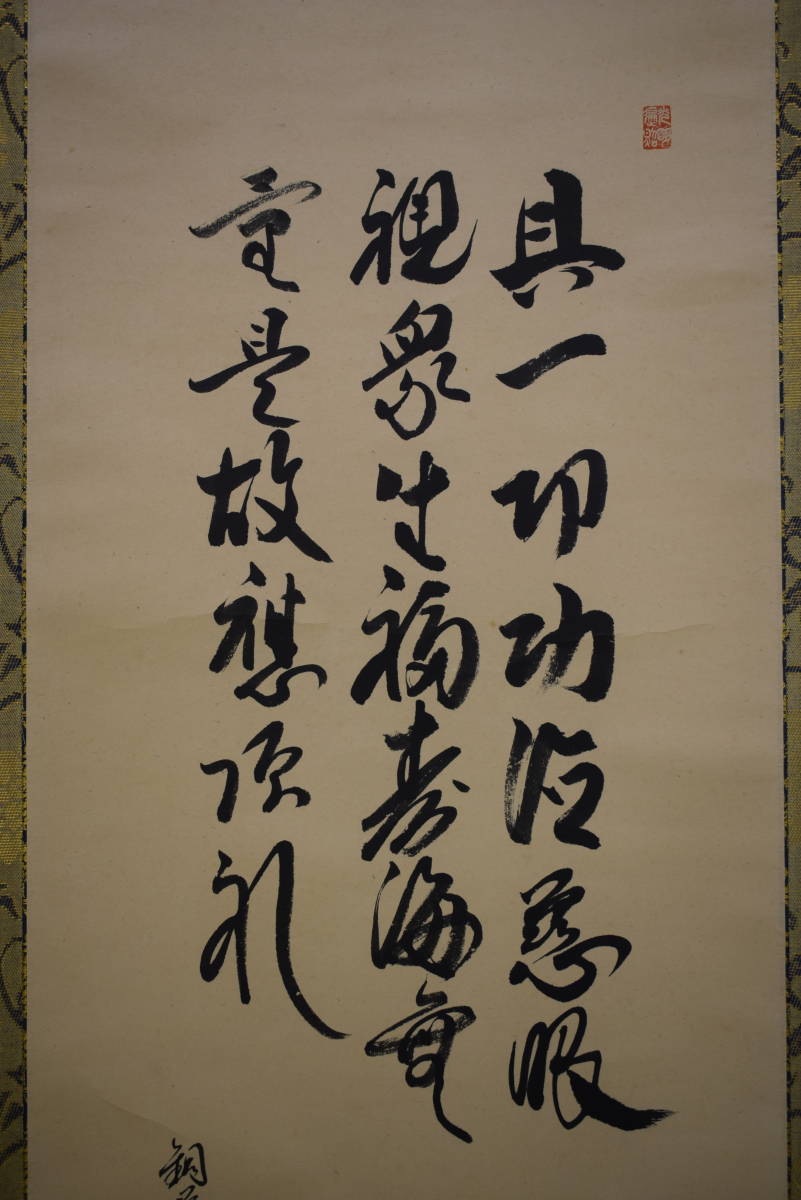 具一切功徳慈眼
視衆生福寿海無
量是故應頂礼